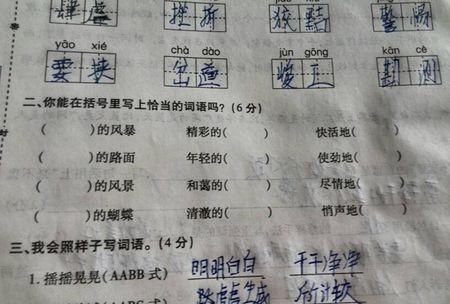 肆虐 挫折 狡黠
yāo xié chà dào jùn gōng kān cè
要挟 岔道 竣工 勘测
二、你能在括号里写上恰当的词语吗?(6分)
( )的风暴 精彩的( ) 快活地( )
( )的路面 年轻的( ) 使劲地( )
( )的风景 和蔼的( ) 尽情地( )
( )的蝴蝶 清澈的( ) 悄声地( )
三、我会照样子写词语。(4分)
1.摇摇晃晃(AABB式) 明明白白 干干净净